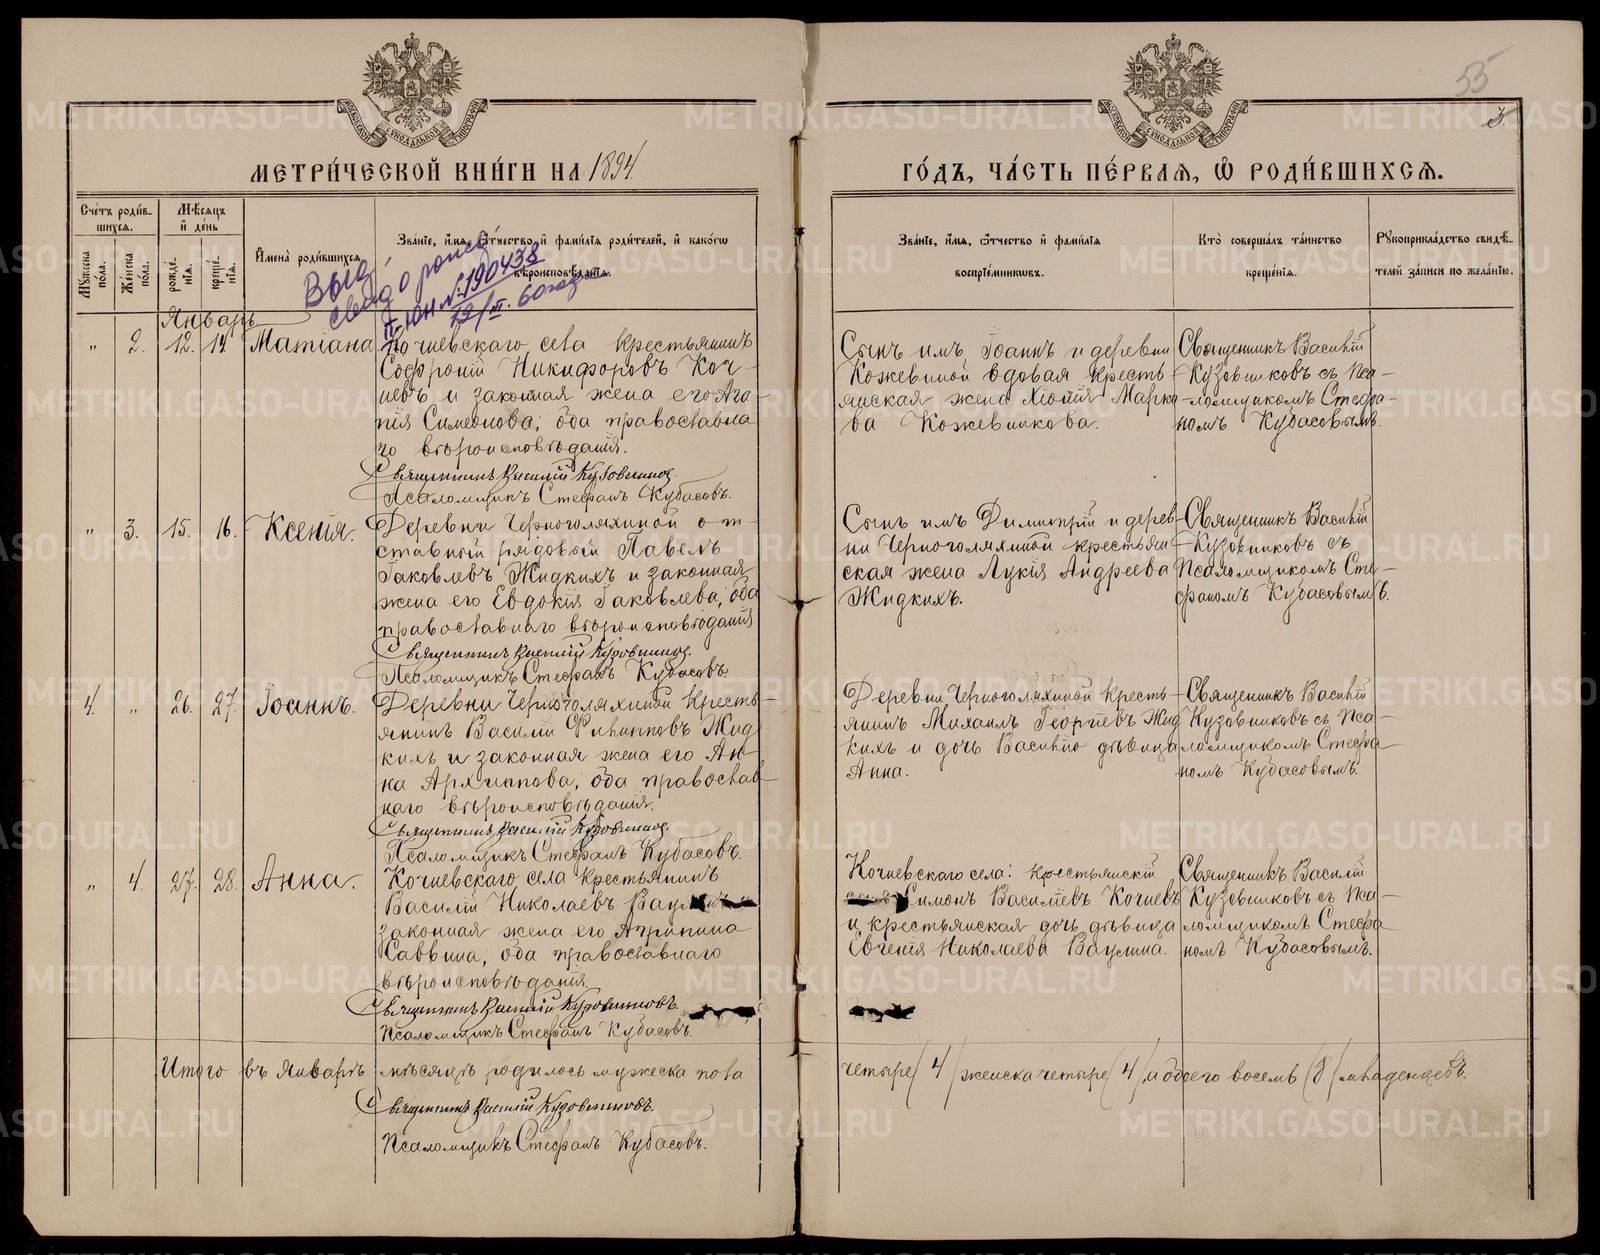 55
3.
МЕТРИ́ЧЕСКОЙ КНИ́ГИ НА 1894
ГО́ДЪ, ЧА́СТЬ ПЕ́РВАѦ, Ѡ҆ РОДИ́ВШИХСѦ.
Сче́тъ роди́в-
шихся.
Мѣ́сяцъ
и҆ де́нь
Му́жеска
по́ла.
Же́нска
по́ла.
рожде́-
нїя.
креще́-
нїя.
И҆мена̀ роди́вшихся
Зва́нїе, и҆́мя, ѻ҆́тчество и҆ фами́лїя роди́телей, и҆ како́гѡ
вѣроисповѣ́данїя.
Зва́нїе, и҆́мя, ѻ҆́тчество и҆ фами́лїя
воспрїе́мниковъ.
Кто̀ соверша́лъ та́инство
креще́нїя.
Рукоприкла́дство свидѣ́-
телей за́писи по жела́нїю.
Выд.
свид о рожд
II-ЮН №190438
12/III. 60года
Январь
" 2. 12. 14. Татіана
Кочневскаго села крестьянинъ
Софроній Никифоровъ Коч-
невъ и законная жена его Ага-
пія Симеонова; оба православна-
го вѣроисповѣданія.
Священникъ Василій Кузовниковъ.
Псаломщикъ Стефанъ Кубасовъ.
Сынъ имъ Іоаннъ и деревни
Кожевиной вдовая кресть-
янская жена Хіонія Марко-
ва Кожевникова.
Священникъ Василій
Кузовниковъ съ Пса-
ломщикомъ Стефа-
номъ Кубасовымъ.
" 3. 15. 16. Ксенія.
Деревни Черноголяхиной от-
ставной рядовый Павелъ
Іаковлевъ Жидкихъ и законная
жена его Евдокія Іаковлева, оба
православнаго вѣроисповѣданія
Священникъ Василій Кузовниковъ.
Псаломщикъ Стефанъ Кубасовъ
Сынъ имъ Димитрій и дерев-
ни Черноголяхиной крестьян-
ская жена Лукія Андреева
Жидкихъ.
Священникъ Василій
Кузовниковъ съ
Псаломщикомъ Сте-
фаномъ Кубасовымъ.
4. " 26. 27. Іоаннъ.
Деревни Черноголяхиной кресть-
янинъ Василій Филипповъ Жид-
кихъ и законная жена его Ан-
на Архиппова, оба православ-
наго вѣроисповѣданія.
Священникъ Василій Кузовниковъ.
Псаломщикъ Стефанъ Кубасовъ.
Деревни Черноголяхиной кресть-
янинъ Михаилъ Георгіевъ Жид-
кихъ и дочь Василію дѣвица
Анна.
Священникъ Василій
Кузовниковъ съ Пса-
ломщикомъ Стефа-
номъ Кубасовымъ.
" 4. 27. 28. Анна.
Кочневскаго села крестьянинъ
Василій Николаевъ Ваулинъ
законная жена его Агрипина
Саввина, оба православнаго
вѣроисповѣданія
Священникъ Василій Кузовниковъ
Псаломщикъ Стефанъ Кубасовъ.
Кочневскаго села: крестьянскій
Симонъ Василіевъ Кочневъ
и крестьянская дочь дѣвица
Евгенія Николаева Ваулина.
Священникъ Василій
Кузовниковъ съ Пса-
ломщикомъ Стефа-
номъ Кубасовымъ.
Итого въ Январѣ мѣсяцѣ родилось мужеска пола
четыре /4/ женска четыре /4/, а обоего восемь /8/ младенцевъ.
Священникъ Василій Кузовниковъ.
Псаломщикъ Стефанъ Кубасовъ.
METRIKI.GASO-URAL.RU